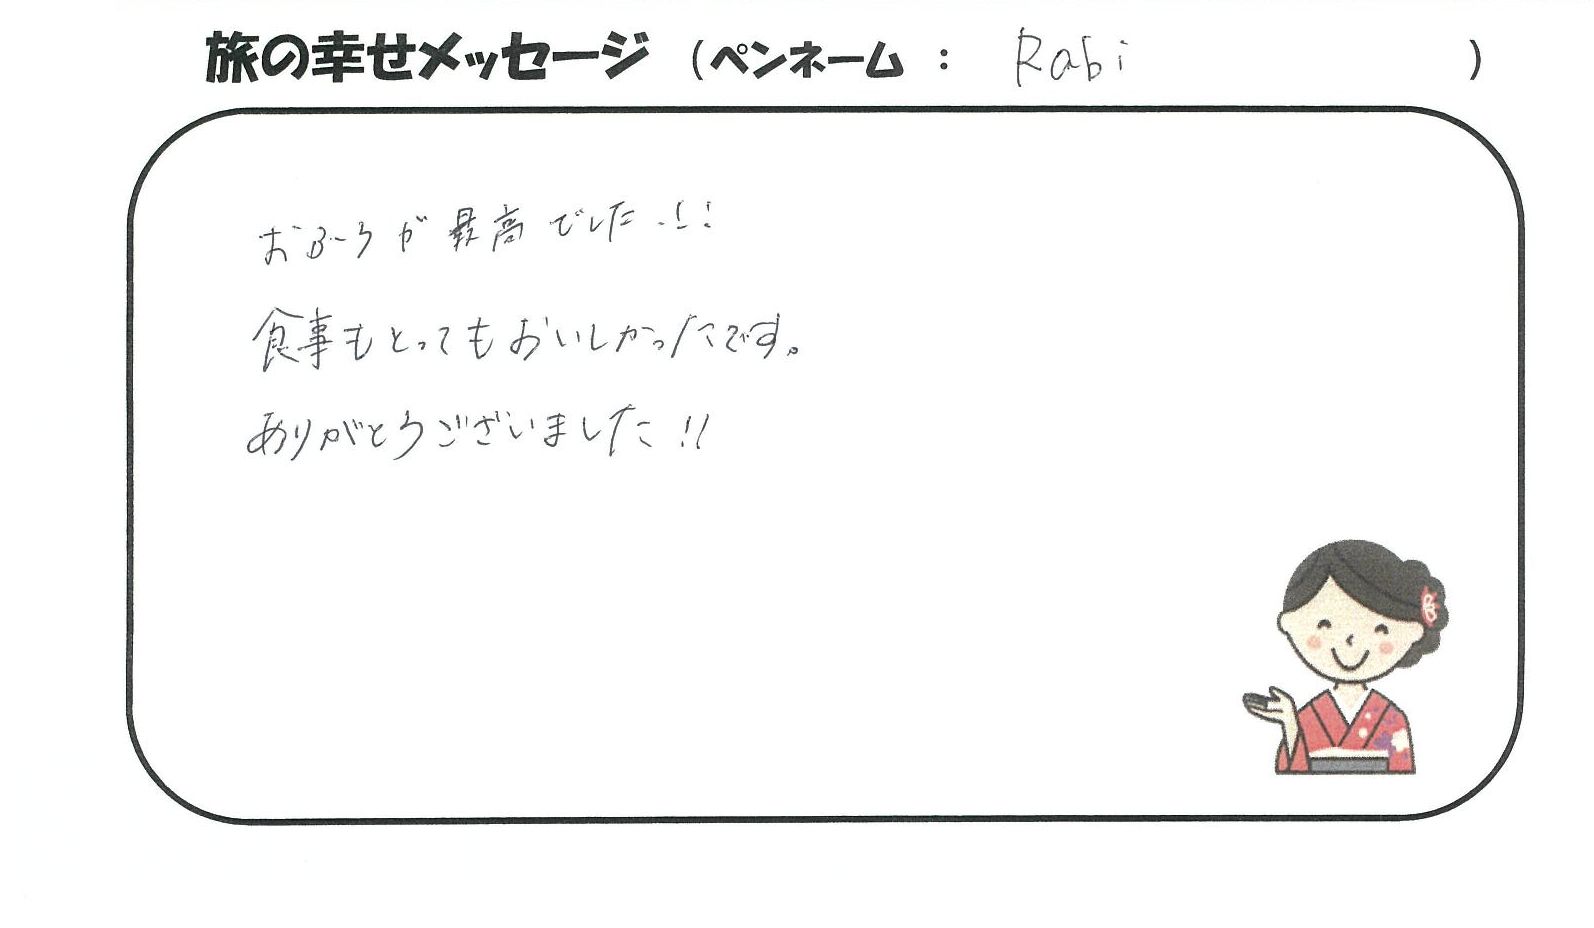 旅の幸せメッセージ （ペンネーム ： Rabi ）
おふろが最高でした!!
食事もとってもおいしかったです。
ありがとうございました!!